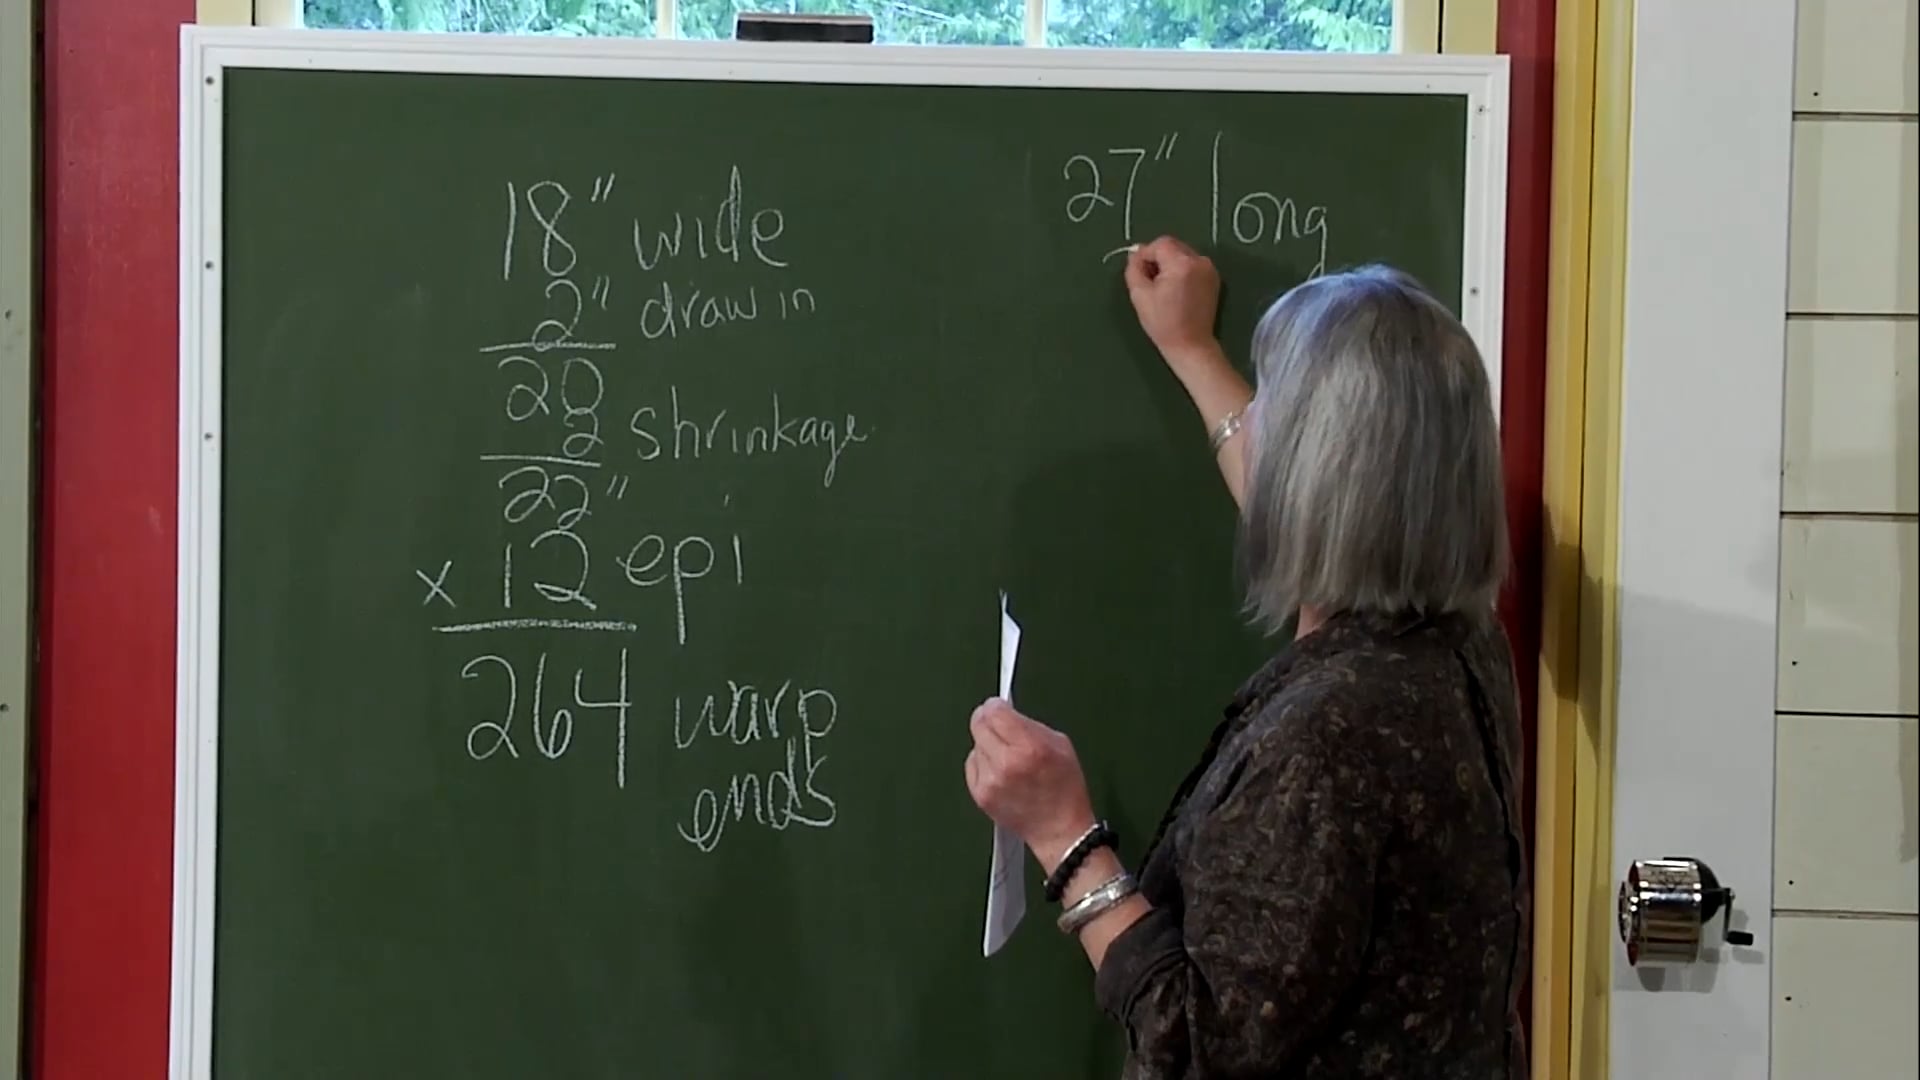 18" wide
2" draw in
20
2 shrinkage
22"
x 12 epi
264 warp
ends
27" long